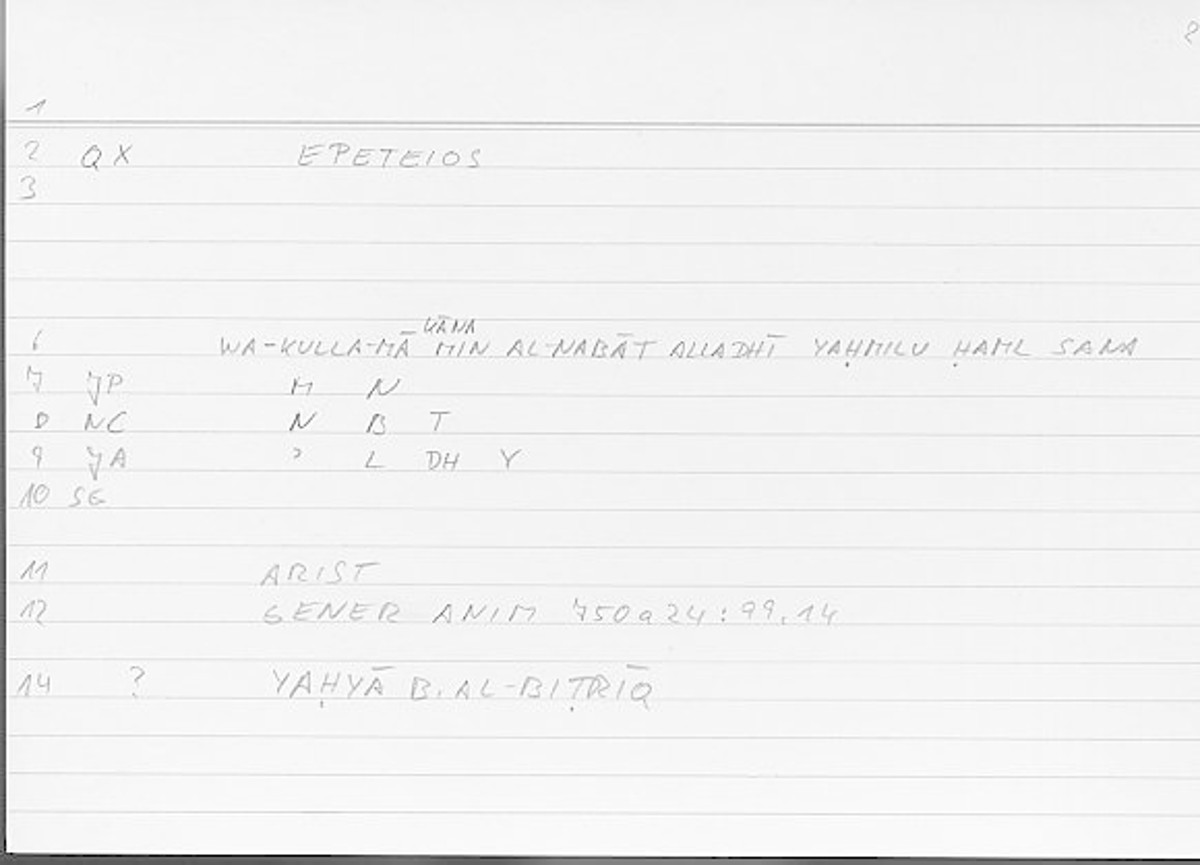 8
1
2 QX EPETEIOS
3
KĀNA
6 WA-KULLA-MĀ MIN AL-NABĀT ALLADHĪ YAḤMILU ḤAML SANA
7 JP M N
8 NC N B T
9 JA ʾ L DH Y
10 SE
11 ARIST
12 GENER ANIM 750a24:99.14
14 ? YAḤYĀ B. AL-BIṬRĪQ